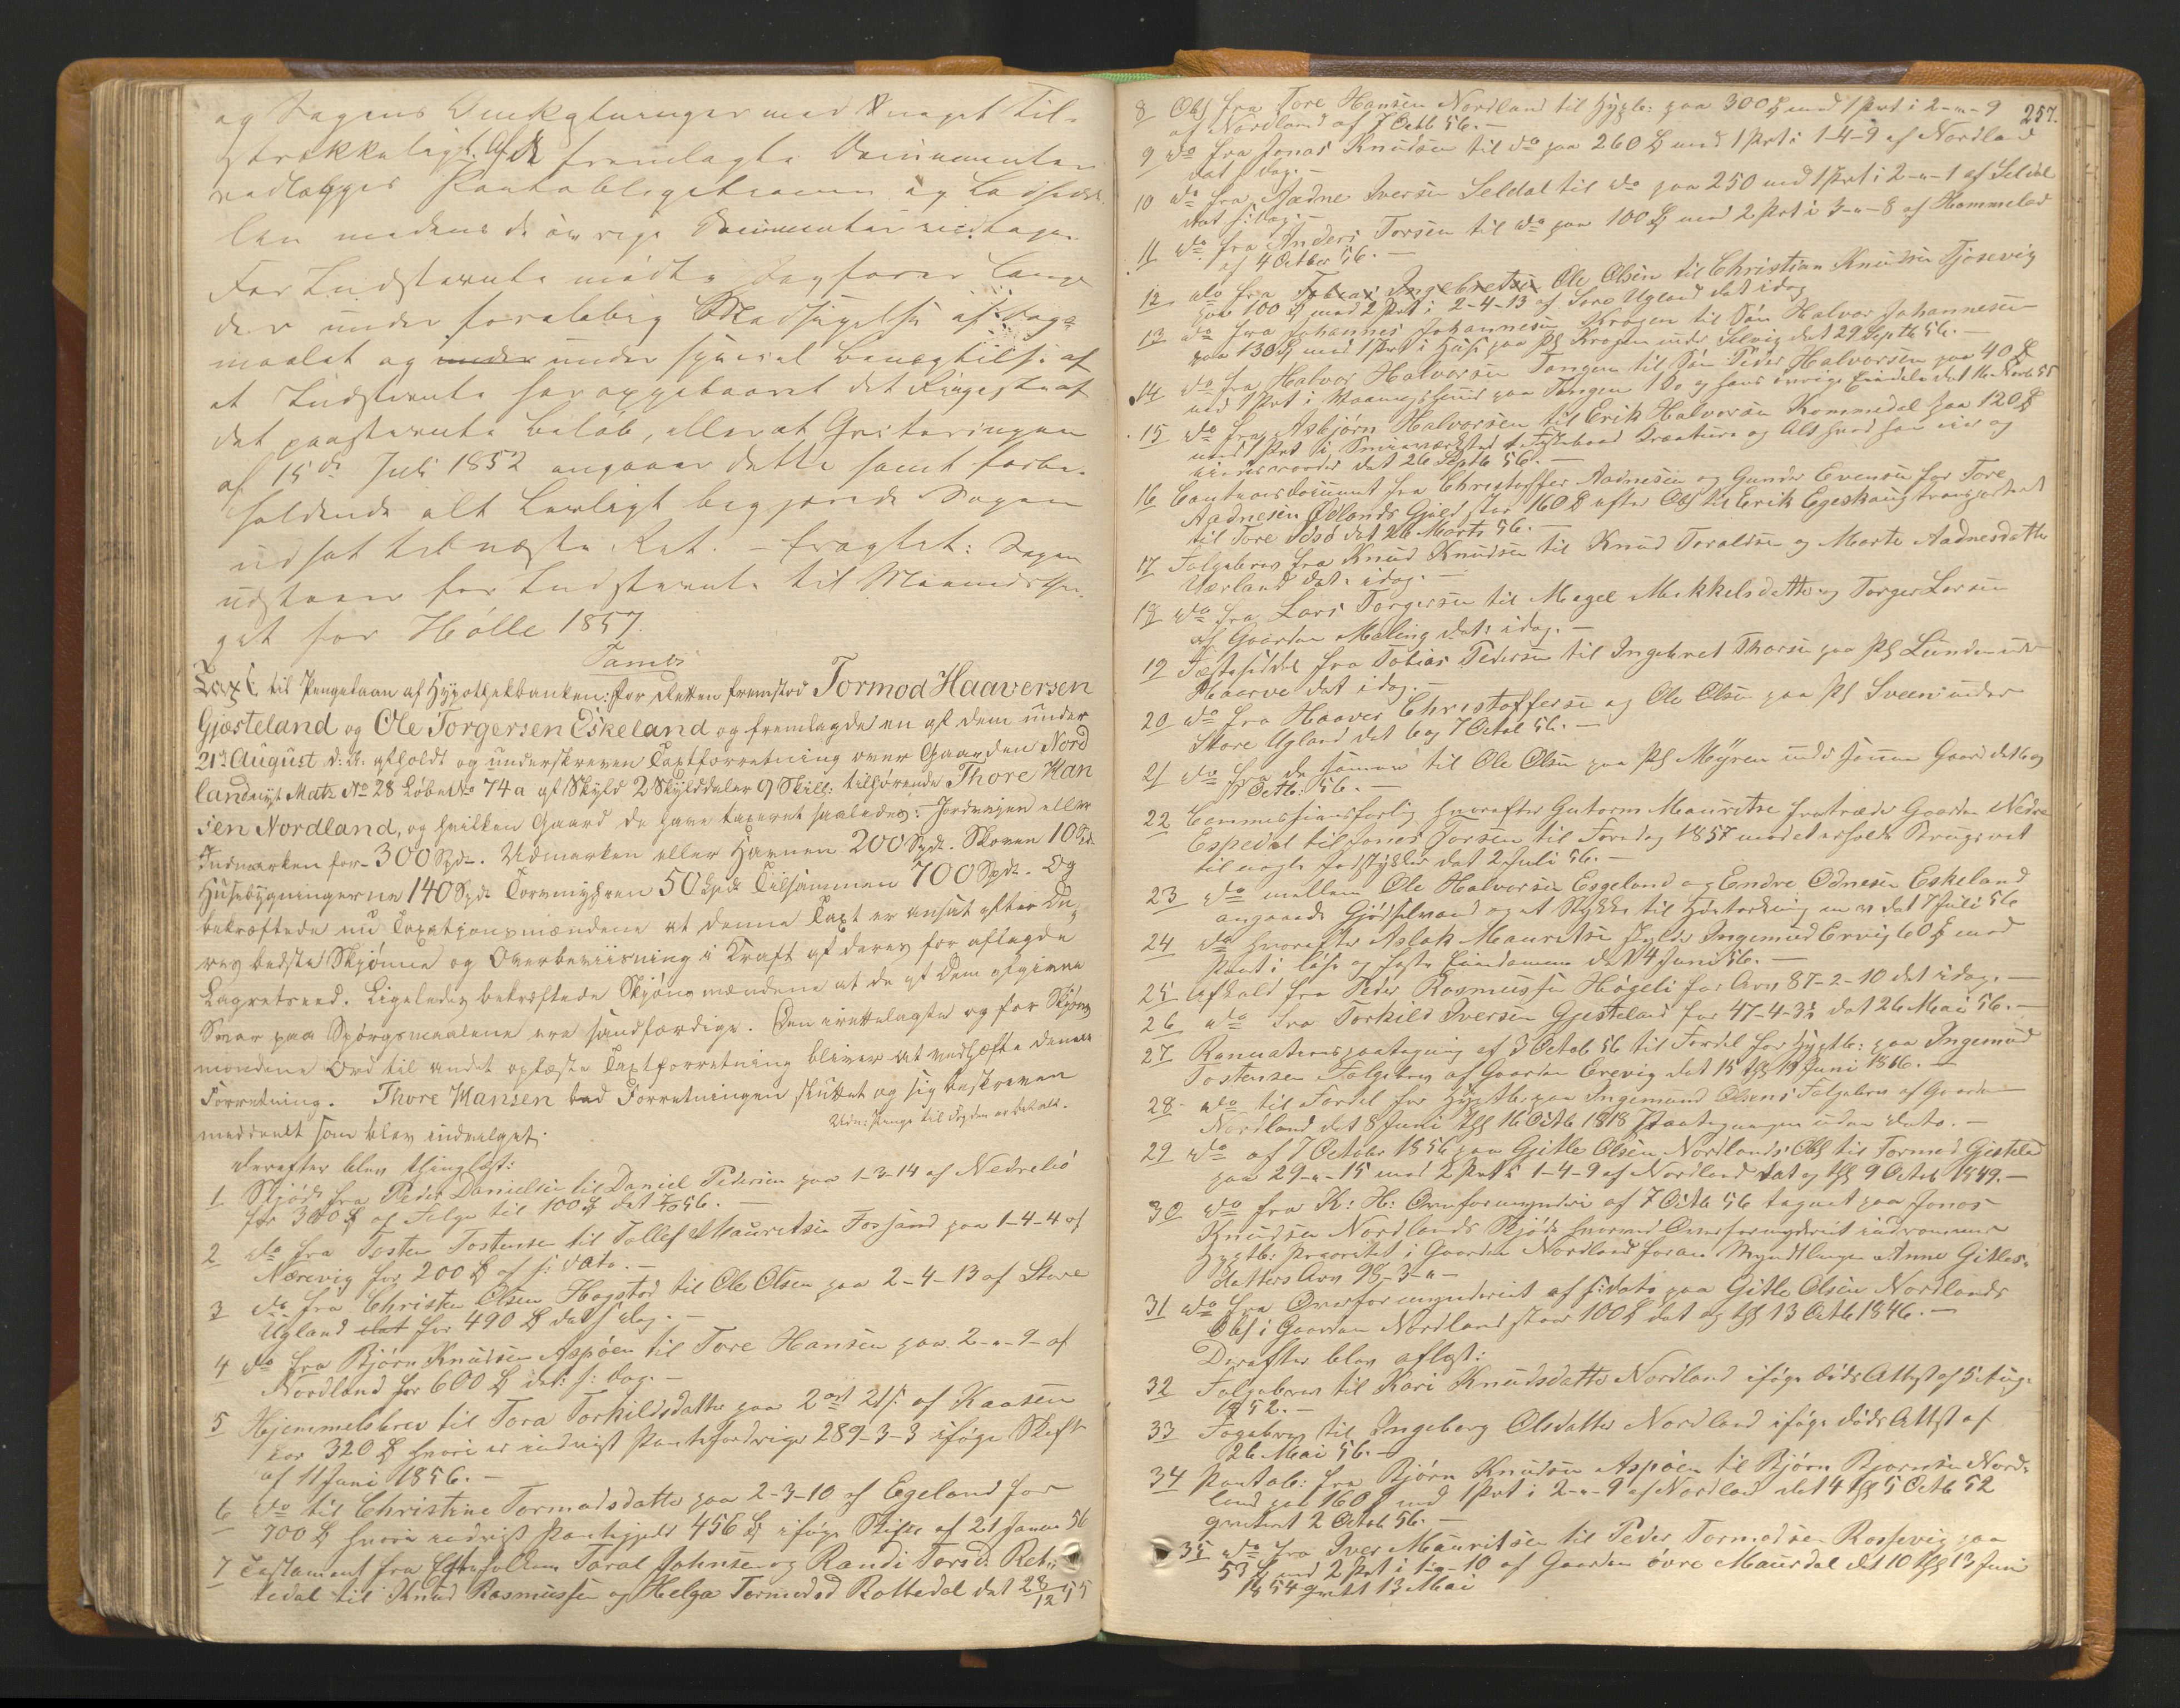 og Sagens Omkostninger med Knapt til-
strekkeligt. Af de fremlagte Documenter
vedlægges Pantobligationen og Ladsedde
len medens de øvrige Documenter
For Indstevnte mødte Sagfører Lange
der under foreløbig Modsigelse af Søgs-
maalet og under under special Benegtelse af
at Indstevnte har oppebaaret det Ringeste af
det paastevnte Beløb, eller at Qviteringen
af 15de Juli 1852 angaaer dette samt forbe-
holdende alt Lovligt begjerede Sagen
udsat til næste Ret. – Eragtet: Sagen
udstaaer for Indstevnte til
get for Hølle 1857.
Tambs
Taxt: til Pengelaan af Hypothekbanken: For Retten fremstod Tormod Haaversen
Gjæsteland og Ole Torgersen Eskeland og fremlagde en af dem under
21de August d: A: afholdt og underskreven Taxtforretning over Gaarden Nord
land nyt Mat: No 28 Løbe No 74 a af Skyld 2 Skylddaler 9 Skill: tilhørende Thore Han
sen Nordland, og hvilken Gaard de have taxeret saaledes: Jordveien eller
Indmarken for 300 Spd. Udmarken eller Havnen 200 Spd. Skoven 10 Spd.
Husebygningerne 140 Spd. Torvmyhren 50 Spd. Tilsammen 700 Spd. Og
bekræftede nu Taxationsmændene at denne Taxt er ansat efter De-
res bedste Skjønne og Overbeviisning i Kraft af deres før aflagde
Lagretseed. Ligeledes bekræftede Skjønsmændene at de af dem afgivne
Svar paa Spørgsmaalene ere sandfærdige. Den irettelagte og for Skjøns
mændene Ord til andet oplæste Taxtforretning bliver at vedhæfte denne
Forretning. Thore Hansen bad Forretningen sluttet og sig beskreven
meddeelt som blev indvilget.
Derefter blev thinglæst:
1 Skjøde fra Peder Danielsen til Daniel Pedersen paa 1-3-14 af Nedrelid
for 300 Spd og Folge til 100 Spd dat 7/10 56. –
2 do fra Tosten Tostensen til Tollef Mauritsen Fossand paa 1-4-4 af
Nærevig for 200 Spd af s: dato. –
3 do fra Christen Olsen Hogstad til Ole Olsen paa 2-4-13 af Store
Ugland dat for 490 Spd dat s dag. –
4 do fra Bjørn Knudsen Aspøen til Tore Hansen paa 2-"-9 af
Nordland for 600 Spd dat: s: dag. –
5 Hjemmelsbrev til Tora Torkildsdatter paa 2 ort 21 s: af Kaasen
for 320 Spd hvori er indvist Pantefordringer 289-3-3 ifølge Skifte
af 11 Juni 1856. –
6 do til Christine Tormodsdatter paa 2-3-10 af Egeland for
700 Spd hvori indvist Pantegjeld 456 Spd ifølge Skifte af 21 Januar 56
7 Testament fra Ægtefolkene Taral Johnsen og Randi Torsd. Rot-
tedal til Knud Rasmussen og Helga Tormodsd Rottedal dat 28/12 55
257.
8 Obl fra Tore Hansen Nordland til Hypb: paa 300 Spd med 1 Prt i 2-"-9
af Nordland af 7 Octb 56. –
9 do fra Jonas Knudsen til do paa 260 Spd med 1 Prt i 1-4-9 af Nordland
dat s dag. –
10 do fra Aadne Iversen Seldal til do paa 250 med 1 Prt i 2-"-1 af Seldal
dat s: dag. –
11 do fra Anders Torsen til do paa 100 Spd med 2 Prt i 3-"-8 af Hommeland
af 4 October 56. –
12 do fra Tobias Ingebretsen Ole Olsen til Christian Knudsen Tjosevig
paa 100 Spd med 2 Prt i 2-4-13 af Store Ugland dat idag
13 do fra Johannes Johannesen Krogen til Søn Halvor Johannesen
paa 130 Spd med 1 Prt i Huse paa Pl Krogen under Selvig dat 29 Septb 56. –
14 do fra Halvor Halvorsen Tangen til Søn Peder Halvorsen paa 40 Spd
med 1 Prt i Vaaningshuus paa Tangen 1 Ko og hans øvrige Eiendele dat 16 Novb 55
15 do fra Asbjørn Halvorsen til Erik Halvorsen Kommedal paa 120 Spd
med 1 Prt i Kreature og Alt hvad han eier og
eiende vorder dat 26 Septb 56. –
16 Cautionsdocument fra Christoffer Aadnesen og Gunder Evensen for Tore
Aadnesen Ødlands Gjeld stor 160 Spd efter Obl til Erik Egeskaug transporteret
til Tore Idsø dat 26 Marts 56. –
17 Folgebrev fra Knud Knudsen til Knud Toraldsen og Marte Aadnesdatter
Værland dat: idag. –
18 do fra Lars Torgersen til Magel Mikkelsdatter og Torger Larsen
af Gaarden Maling dat: idag. –
19 Fæsteseddel fra Tobias Pedersen til Ingebret Thorsen paa Pl Lunden under
Maarve dat idag. –
20 do fra Haaver Christoffersen og Ole Olsen paa Pl Sveen under
Store Ugland dat 6 og 7 Octob 56. –
21 do fra de samme til Ole Olsen paa Pl Myren under samme Gaard dat 6 og
7 Octb: 56. –
22 Commissionsforlig hvorefter Gutorm Mauritsen fratræder Gaarden Nedre
Espedal til Jonas Torsen til Faredag 1857 mod at erholde Brugsret
til nogle Jordstykker dat 2 Juli 56. –
23 do mellem Ole Halvorsen Esgeland og Endre Odnesen Eskeland
angaaende Gjødselvand og et Stykke til Høetørking m.v. dat 7 Juli 56
24 do hvorefter Aslak Mauritsen skylder Ingemud Ervig 60 Spd mod
Pant i løse og faste Eiendomme dat 4 Juni 56. –
25 Afkald fra Peder Rasmussen Høgeli for Arv 87-2-10 dat idag. –
26 do fra Torkild Iversen Gjesteland for 47-4-3½ dat 26 Mai 56. –
27 Renunciationspaategning af 3 Octob 56 til Fordel for Hypb: paa Ingemud
Tostensen Folgebrev af Gaarden Erevig dat 15 thgl 19 Juni 1866. –
28 do til Fordel for Hypb. paa Ingemund Olsens Folgebrev af Gaarden
Nordland dat 8 Juni thgl 16 Octb 1818 Paategningen uden dato. –
29 do af 7 October 1856 paa Gitle Olsen Nordlands Obl til Tormod Gjesteland
paa 29-"-15 med 2 Prt i 1-4-9 af Nordland dat og thgl 9 Octob 1849. –
30 do fra K: H: Overformynderi af 7 Octb 56 tegnet paa Jonas
Knudsen Nordlands Skjøde hvorved Overformynderiet indrømmer
Hypb: Prioritet i Gaarden Nordland foran Myndtlingen Anne Gitles-
datters Arv 98-3-"-
31 do fra Overformynderiet af s: dato paa Gitle Olsen Nordlands
Obl i Gaarden Nordland stor 100 Spd dat og thgl 13 Octb 1846. –
Derefter blev aflæst:
32 Folgebrev til Kari Knudsdatter Nordland ifølge døds Attest af 5 Aug.
1852. –
33 Fogebrev til Ingeborg Olsdatter Nordland ifølge døds Attst af
26 Mai 56. –
34 Pantob: fra Bjørn Knudsen Aspøen til Bjørn Bjørnsen Nord-
land paa 160 Spd med 1 Prt i 2-"-9 af Nordland dat 4 thgl 5 Octb 52
qvitteret 2 Octob 56. –
35 do fra Iver Mauritsen til Peder Tormodsen Rossevig paa
53 Spd med 2 Prt i 1-"-10 af Gaarden øvre Maursdal dat 10 thgl 13 Juni
1854 qvitt 13 Mai